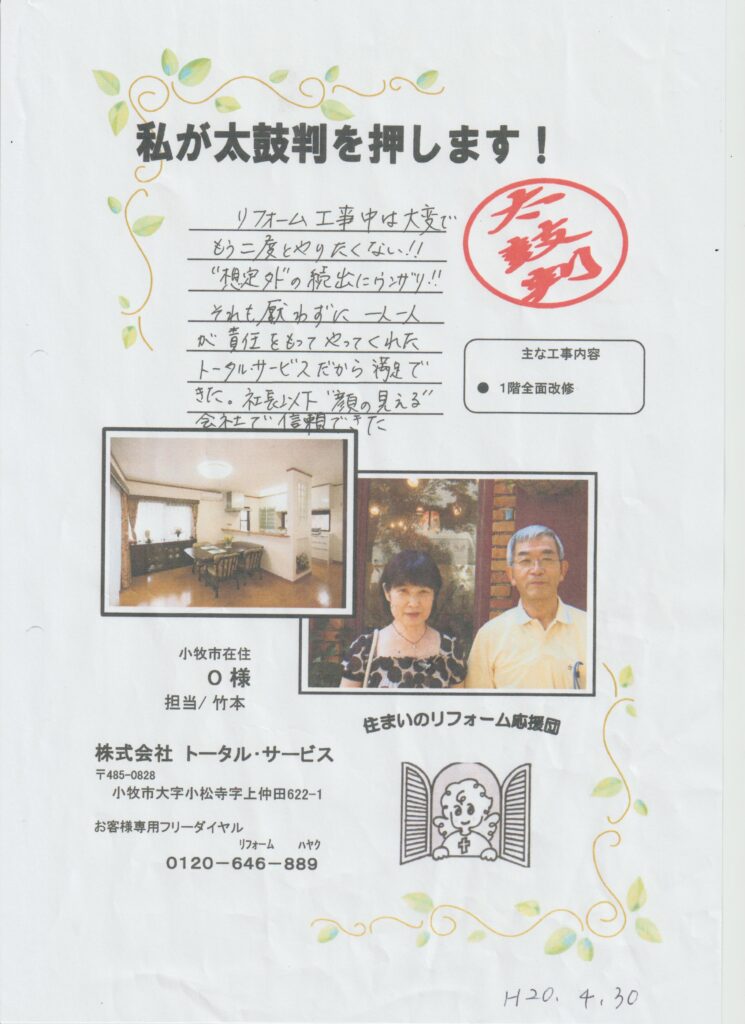 私が太鼓判を押します！
リフォーム工事中は大変で
もう二度とやりたくない!!
"想定外"の続出にウンザリ!!
それも厭わずに一人一人
が責任をもってやってくれた
トータル・サービスだから満足で
きた。社長以下"顔の見える"
会社で信頼できた
太
鼓
判
主な工事内容
● 1階全面改修
小牧市在住
O 様
担当/ 竹本
住まいのリフォーム応援団
株式会社 トータル・サービス
〒485-0828
小牧市大字小松寺字上仲田622-1
お客様専用フリーダイヤル
リフォーム ハヤク
0120-646-889
H20. 4. 30